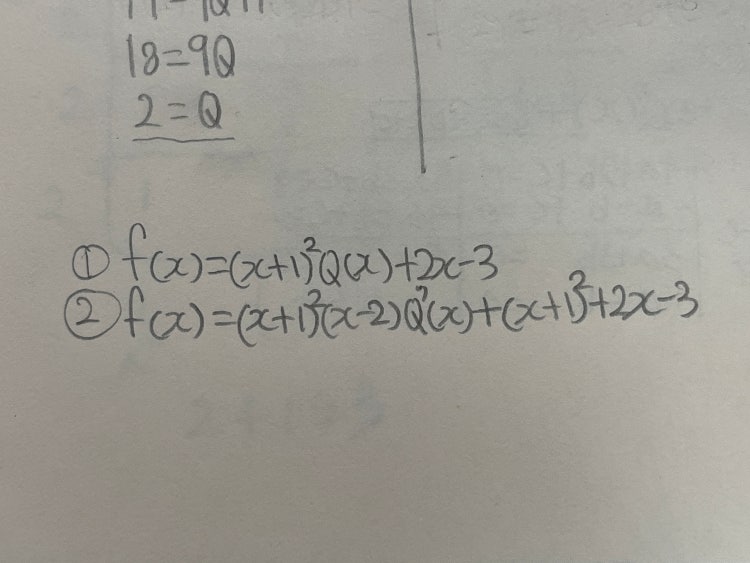 18=9Q
2=Q
① f(x)=(x+1)²Q(x)+2x-3
② f(x)=(x+1)²(x-2)Q'(x)+(x+1)²+2x-3